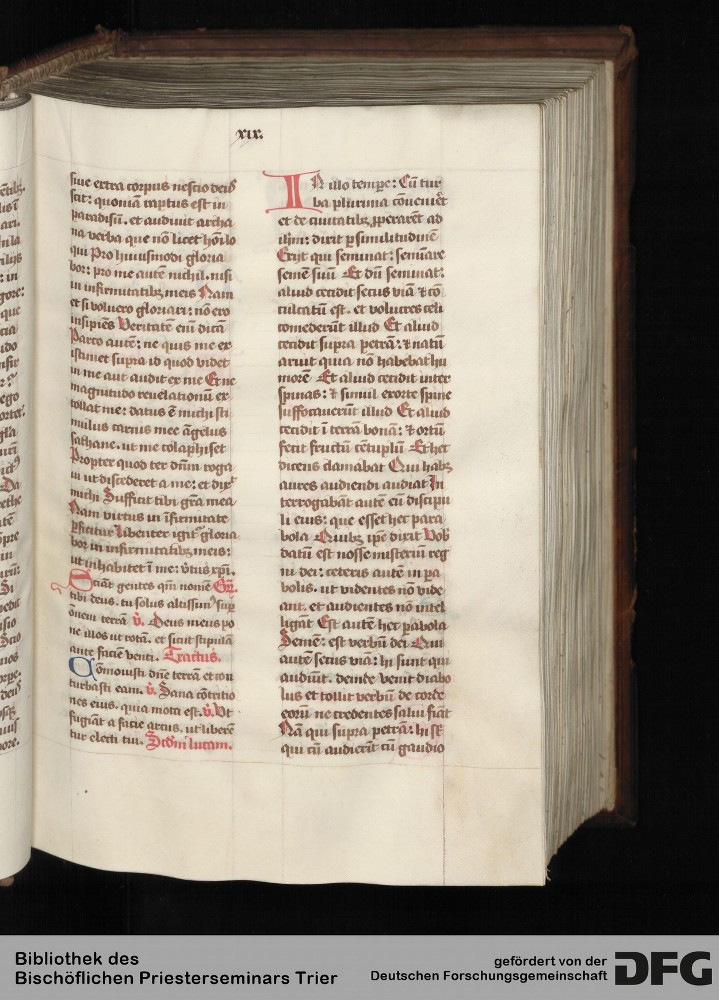 xix.
siue extra corpus nescio deus
scit: quoniã raptus est in
paradisũ. et audiuit archa
na verba que nõ licet hõi lo
qui Pro huiusmodi gloria
bor: pro me autẽ nichil. nisi
in infirmitatibꝫ meis Nam
et si voluero gloriari: nõ ero
insipiẽs Veritatẽ eni͂ dicã
Parco autẽ: ne quis me ex
istimet supra id quod videt
in me aut audit ex me Et ne
magnitudo reuelationũ ex
tollat me: datus ẽ michi sti
mulus carnis mee ãgelus
sathane. ut me colaphiset
Propter quod ter dñm roga
ui ut discederet a me: et dixͭ
michi Sufficit tibi gr̃a mea
Nam virtus in ĩfirmitate
ꝑficitur Libenter igitͬ gloria
bor in infirmitatibꝫ meis:
ut inhabitet ĩ me: v̾tus xp̃i.
Sciãt gentes qm̃ nomẽ Gr̃.
tibi deus. tu solus altissimꝰ suꝑ
õnem terrã v̾. Deus meus po
ne illos ut rotã. et sicut stipulã
ante faciẽ venti. Tractus.
Cõmouisti dñe terrã et con
turbasti eam. v̾. Sana cõtritio
nes eius. quia mota est. v̾. Ut
fugiãt a facie arcus. ut liberẽ
tur electi tui. Scd̃m lucam.
IN illo tempe: Cũ tur
ba plurima cõueniret
et de ciuitatibꝫ ꝓperarẽt ad
ihm: dixit ꝑ similitudinẽ
Exijt qui seminat: seminare
semẽ suũ Et dũ seminat:
aliud cecidit secus viã ⁊ cõ
culcatũ est. et volucres celi
comederũt illud Et aliud
cecidit supra petrã: ⁊ natũ
aruit quia nõ habebat hu
morẽ Et aliud cecidit inter
spinas: ⁊ simul exorte spine
suffocauerũt illud Et aliud
cecidit ĩ terrã bonã: ⁊ ortũ
fecit fructũ cẽtuplũ Et hec
dicens clamabat Qui habꝫ
aures audiendi audiat In
terrogabãt autẽ eũ discipu
li eius: que esset hec para
bola Quibꝫ ip̃e dixit Vob̾
datũ est nosse misteriũ reg
ni dei: ceteris autẽ in pa
bolis. ut videntes nõ vide
ant. et audientes nõ intel
ligãt Est autẽ hec pabola
Semẽ: est verbũ dei Qui
autẽ secus viã: hi sunt qui
audiũt. deinde venit diabo
lus et tollit verbũ de corde
eorũ ne credentes salui fiãt
Nã qui supra petrã: hi sͭ
qui cũ audierĩt cũ gaudio
Bibliothek des
Bischöflichen Priesterseminars Trier
gefördert von der
Deutschen Forschungsgemeinschaft
DFG